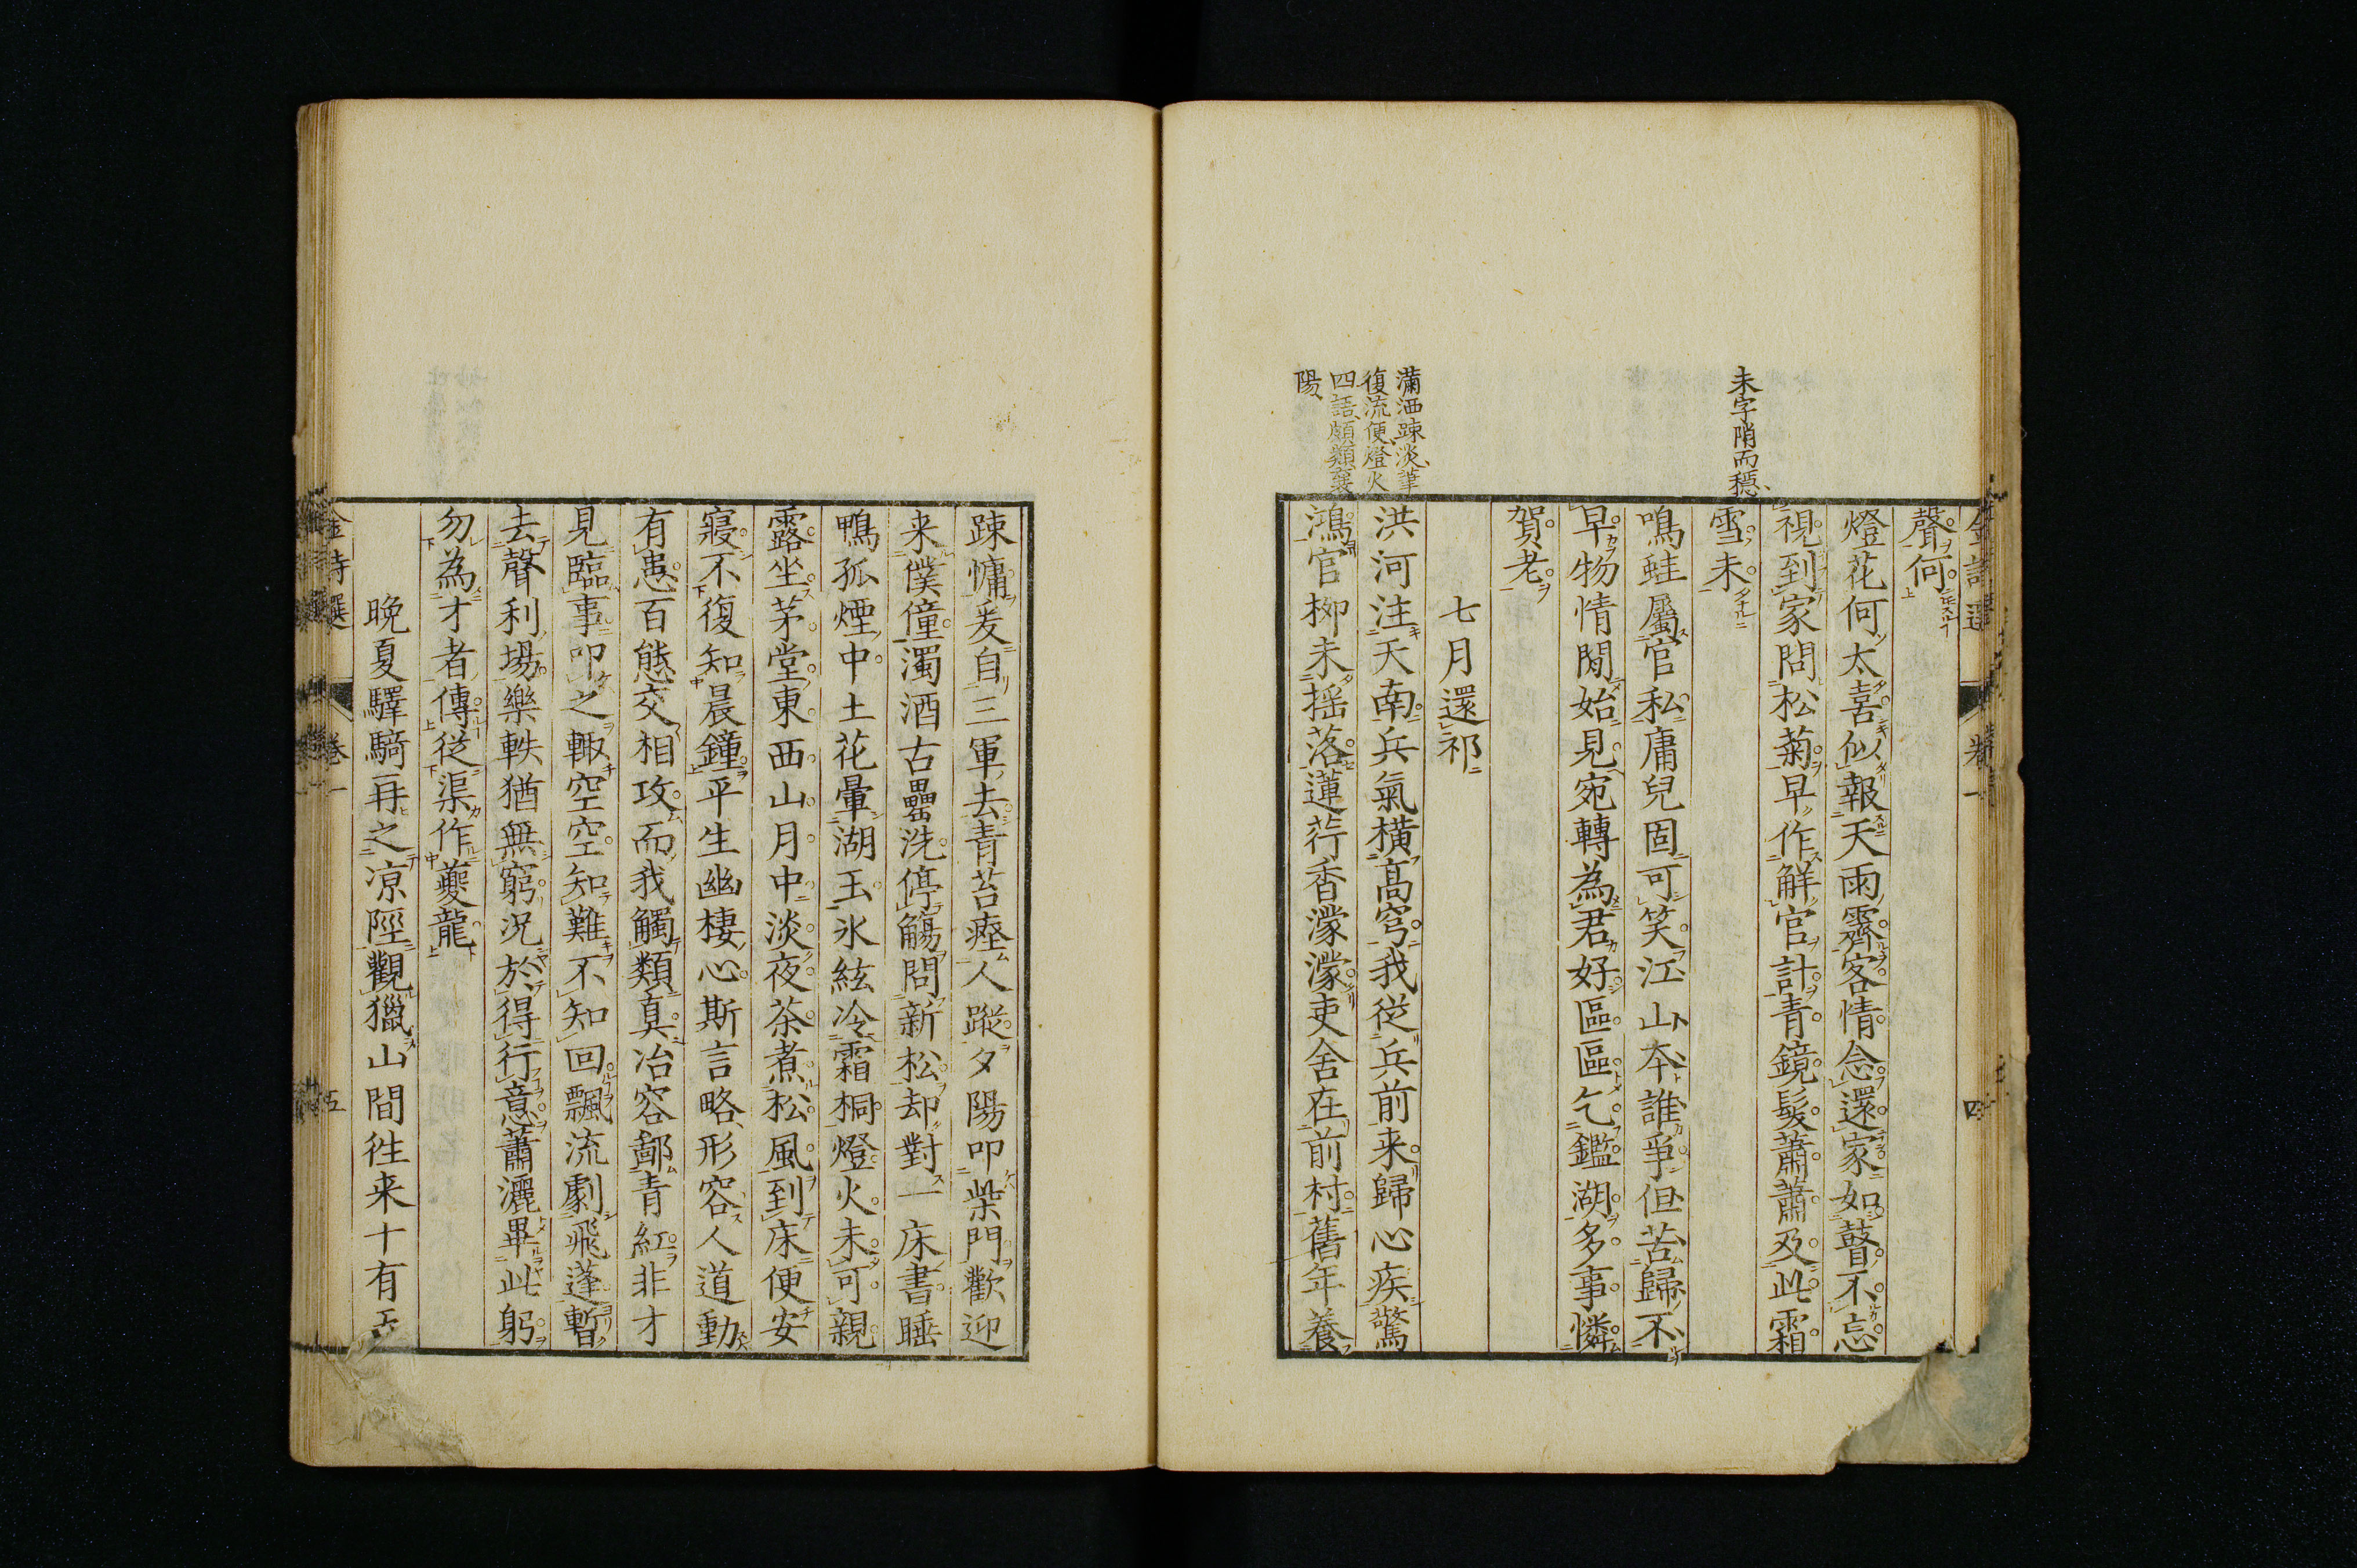 聲何
燈花何太喜似報天雨霽客情念還家如瞽不忘
視到家問松菊早作解官計青鏡髮蕭蕭及此霜
雪未
鳴蛙屬官私庸兒固可笑江山本誰爭但苦歸不
早物情閒始見宛轉為君好區區乞鑑湖多事憐
賀老
七月還祁
洪河注天南兵氣橫高穹我從兵前来歸心疾驚
鴻官柳未揺落蓮荇香濛濛吏舎在前村舊年養
未字陗而穩
瀟洒踈淡筆
復流便燈火
四語頗類襄
陽
踈慵爰自三軍去青苔瘞人蹤夕陽叩柴門歡迎
来僕僮濁酒古罍洗停觴問新松却對一床書睡
鴨孤煙中土花暈湖玉氷絃冷霜桐燈火未可親
露坐茅堂東西山月中淡夜茶煮松風到床便安
寢不復知晨鐘平生幽棲心斯言略形容人道動
有患百態交相攻而我觸類真冶容鄙青紅非才
見臨事叩之輙空空知難不知回飄流劇飛蓬暫
去聲利場樂軼猶無窮況於得行意蕭灑畢此躬
勿為才者傳従渠作夔龍
晩夏驛騎再之凉陘觀獵山間徃来十有五
金詩選 卷一 五